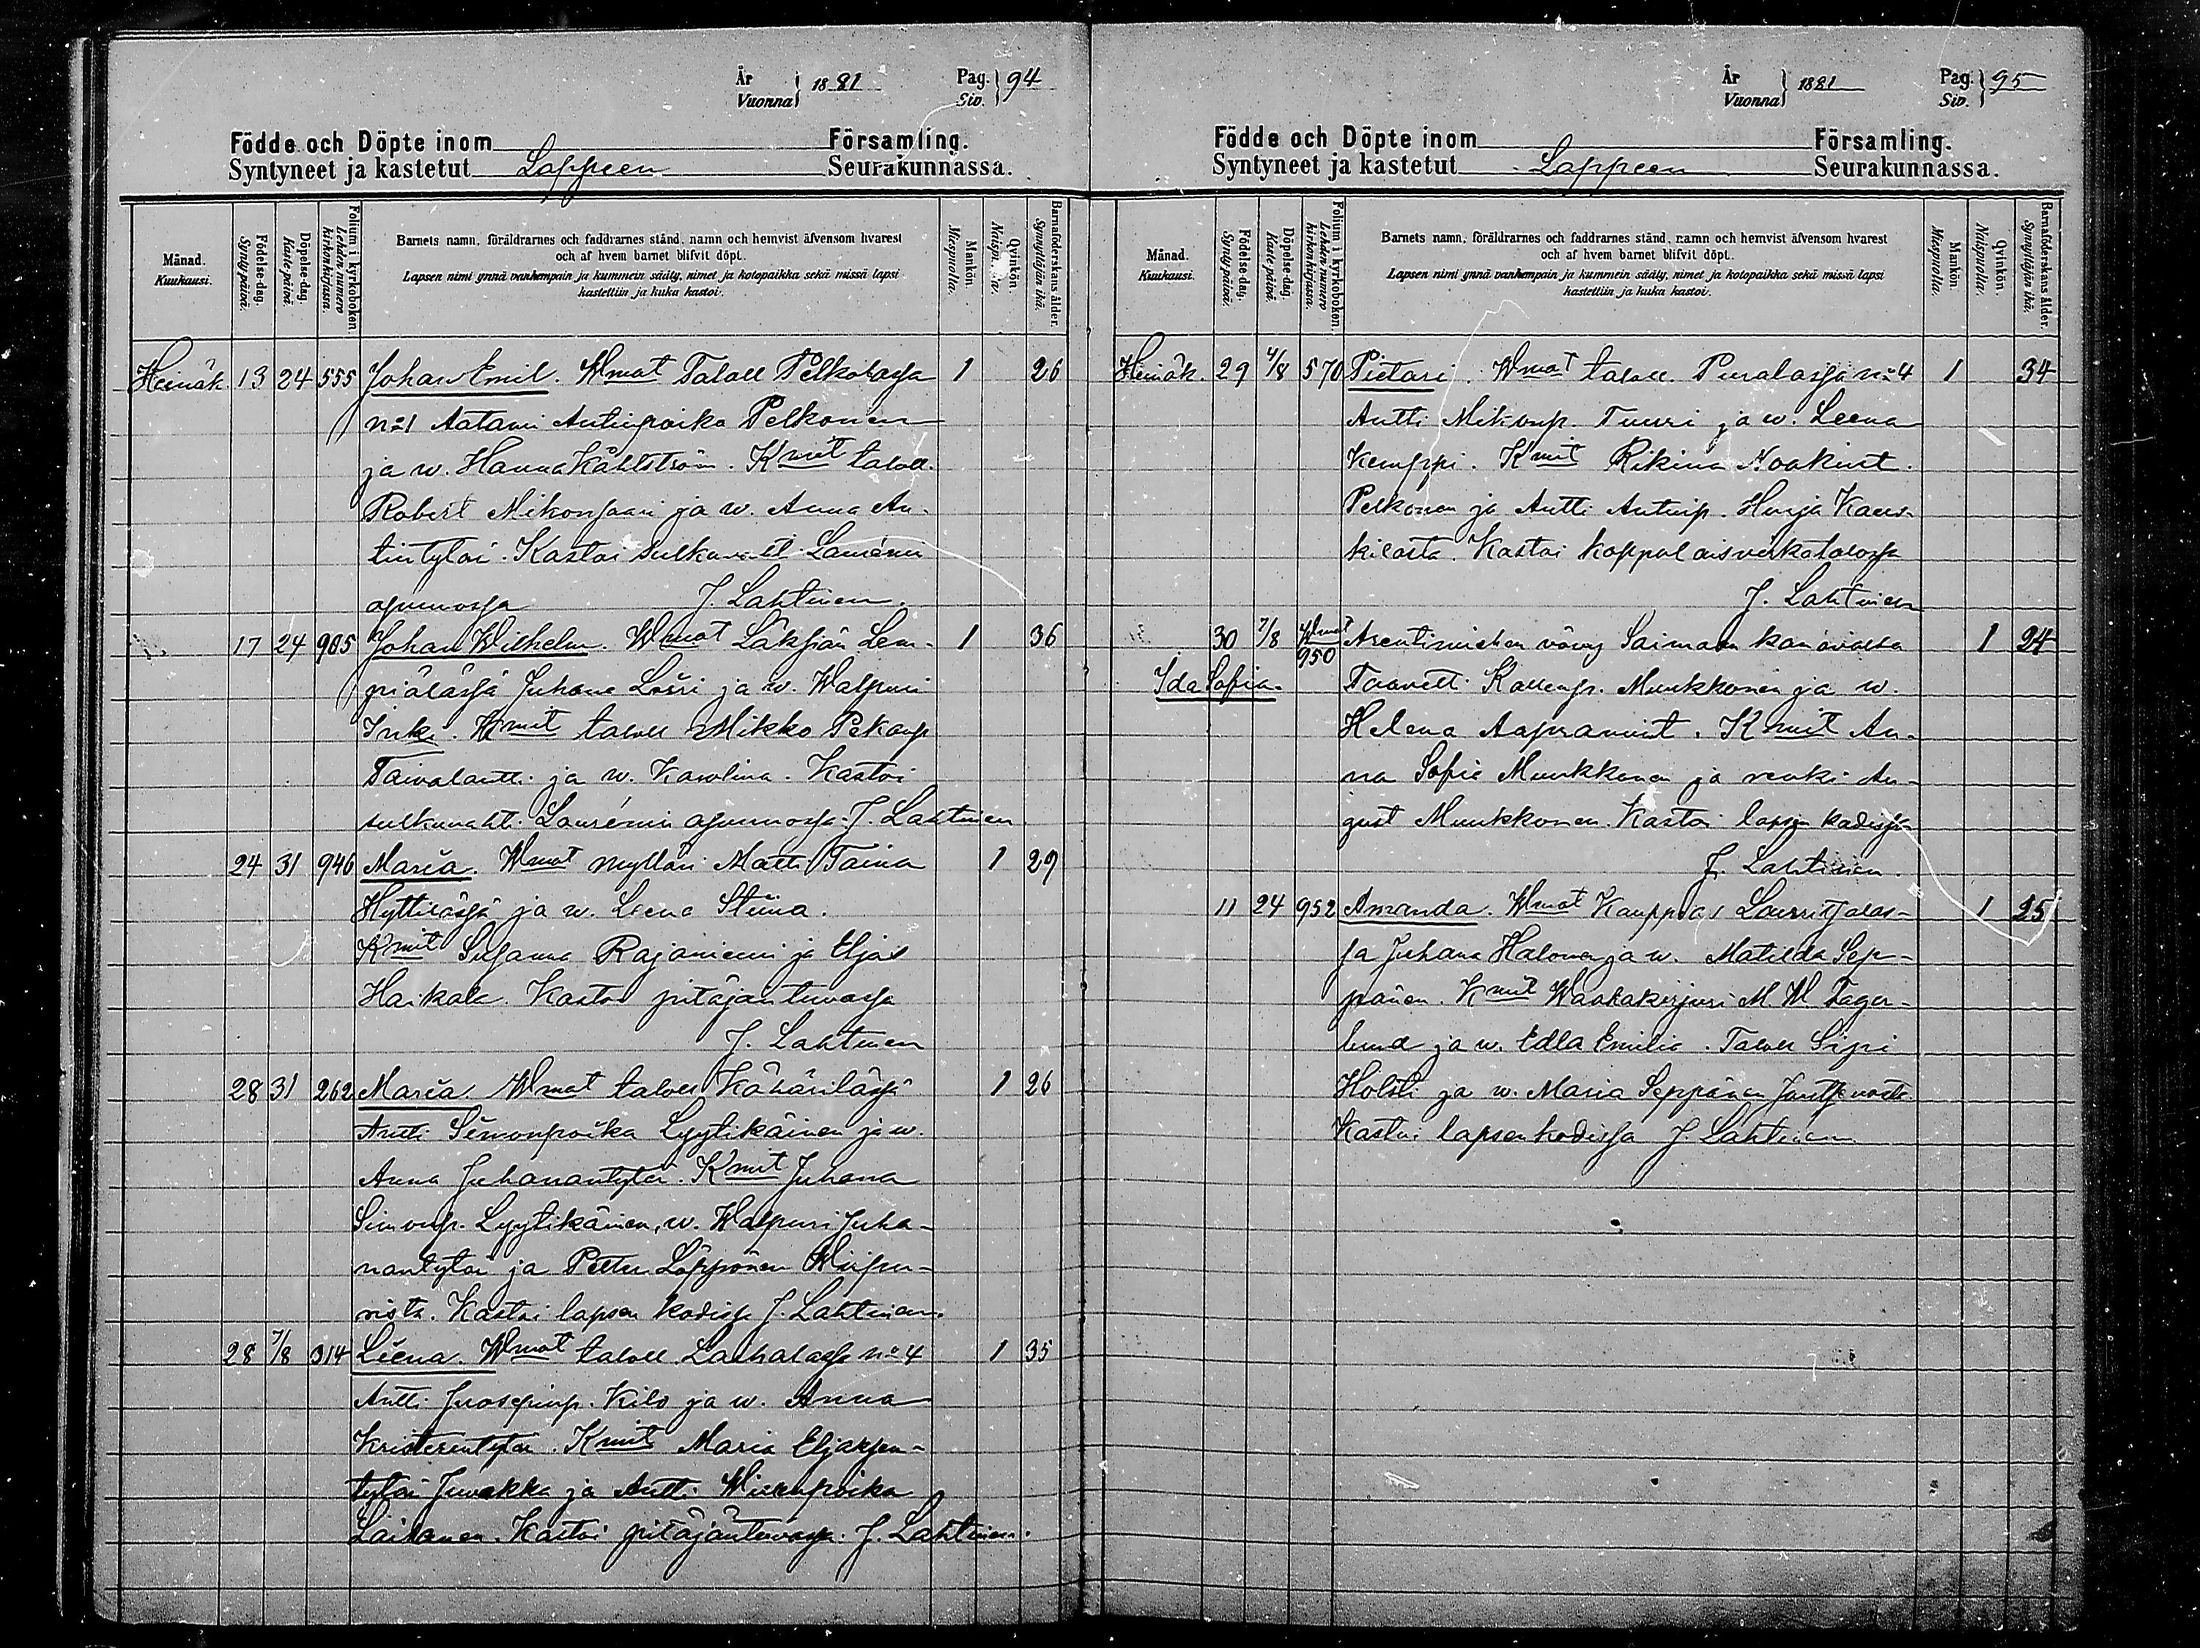 År
Vuonna } 1881 Pag.
Siv. } 94
Födde och Döpte inom Församling.
Syntyneet ja kastetut Lappeen Seurakunnassa.
Månad.
Kuukausi.
Födelse-dag.
Synty-päivä.
Döpelse-dag.
Kaste-päivä.
Folium i kyrkoboken.
Lehden numero
kirkonkirjassa.
Barnets namn, föräldrarnes och faddrarnes stånd, namn och hemvist äfvensom hvarest
och af hvem barnet blifvit döpt.
Lapsen nimi ynnä vanhempain ja kummein sääty, nimet ja kotopaikka sekä missä lapsi
kastettiin ja kuka kastoi.
Mankön.
Miespuolia.
Qvinkön.
Naispuolia.
Barnaföderskans ålder.
Synnyttäjän ikä.
Heinäk. 13 24 555 Johan Emil. Wmat Taloll Pelkolassa 1 26
no 1 Aatami Antinpoika Pelkonen
ja w. Hanna Kählström. Kmit taloll.
Robert Mikonsaari ja w. Anna An-
tintytär. Kastoi sulkuvahti Laurénin
asunnossa J. Lahtinen.
17 24 905 Johan Wilhelm. Wmat Läksjän Lem- 1 36
piälässä Juhana Lässi ja w. Walpuri
Inki. Kmit taloll Mikko Pekanp
Taivalantti ja w. Karolina. Kastoi
sulkuvahti Laurénin asunnossa J. Lahtinen
24 31 946 Maria. Wmat mylläri Matti Taina 1 29
Hyttilässä ja w. Leena Stiina.
Kmit Susanna Rajaniemi ja Eljas
Haikala. Kastoi pitäjäntuvassa
J. Lahtinen
28 31 262 Maria. Wmat taloll Kähärilässä 1 26
Antti Simonpoika Lyytikäinen ja w.
Anna Juhanantytär. Kmit Juhana
Simonp. Lyytikäinen, w. Walpuri Juha-
nantytär ja Petter Läppönen Wiipu-
rista. Kastoi lapsen kodissa J. Lahtinen.
28 7/8 314 Leena. Wmat taloll Lachalassa no 4 1 35
Antti Juosepinp. Kilo ja w. Anna
Kristerintytär. Kmit Maria Eljaksen-
tytär Juvakka ja Antti
Laihanen. Kastoi pitäjäntuvassa. J. Lahtinen.
År
Vuonna } 1881 Pag.
Siv. } 95
Födde och Döpte inom Församling.
Syntyneet ja kastetut Lappeen Seurakunnassa.
Månad.
Kuukausi.
Födelse-dag.
Synty-päivä.
Döpelse-dag.
Kaste-päivä.
Folium i kyrkoboken.
Lehden numero
kirkonkirjassa.
Barnets namn, föräldrarnes och faddrarnes stånd, namn och hemvist äfvensom hvarest
och af hvem barnet blifvit döpt.
Lapsen nimi ynnä vanhempain ja kummein sääty, nimet ja kotopaikka sekä missä lapsi
kastettiin ja kuka kastoi.
Mankön.
Miespuolia.
Qvinkön.
Naispuolia.
Barnaföderskans ålder.
Synnyttäjän ikä.
Heinäk. 29 4/8 570 Pietari. Wmat taloll. Puralassa no 4 1 34
Antti Mikonp. Tuuri ja w. Leena
Kemppi. Kmit Rikina Noakint.
Pelkonen ja Antti Antinp. Hurja Kaus-
kilasta. Kastoi kappalaisvirkatalossa
J. Lahtinen
30 7/8 Wmat 950 Arentimiehen vävy Saimaan kanavalta 1 24
Ida Sofia. Taavetti Kallenp. Muukkonen ja w.
Helena Aapramint. Kmit An-
na Sofie Muukkonen ja renki Au-
gust Muukkonen. Kastoi lapsen kodissa
J. Lahtinen.
11 24 952 Amanda. Wmat Kauppias Lauritsalas- 1 25
sa Juhana Halonen ja w. Matilda Sep-
pänen. Kmit Waakakirjuri M. W. Fager-
lund ja w. Edla Emilia. Taloll Sipi
Holsti ja w. Maria Seppänen Joutsenosta
Kastoi lapsen kodissa J. Lahtinen